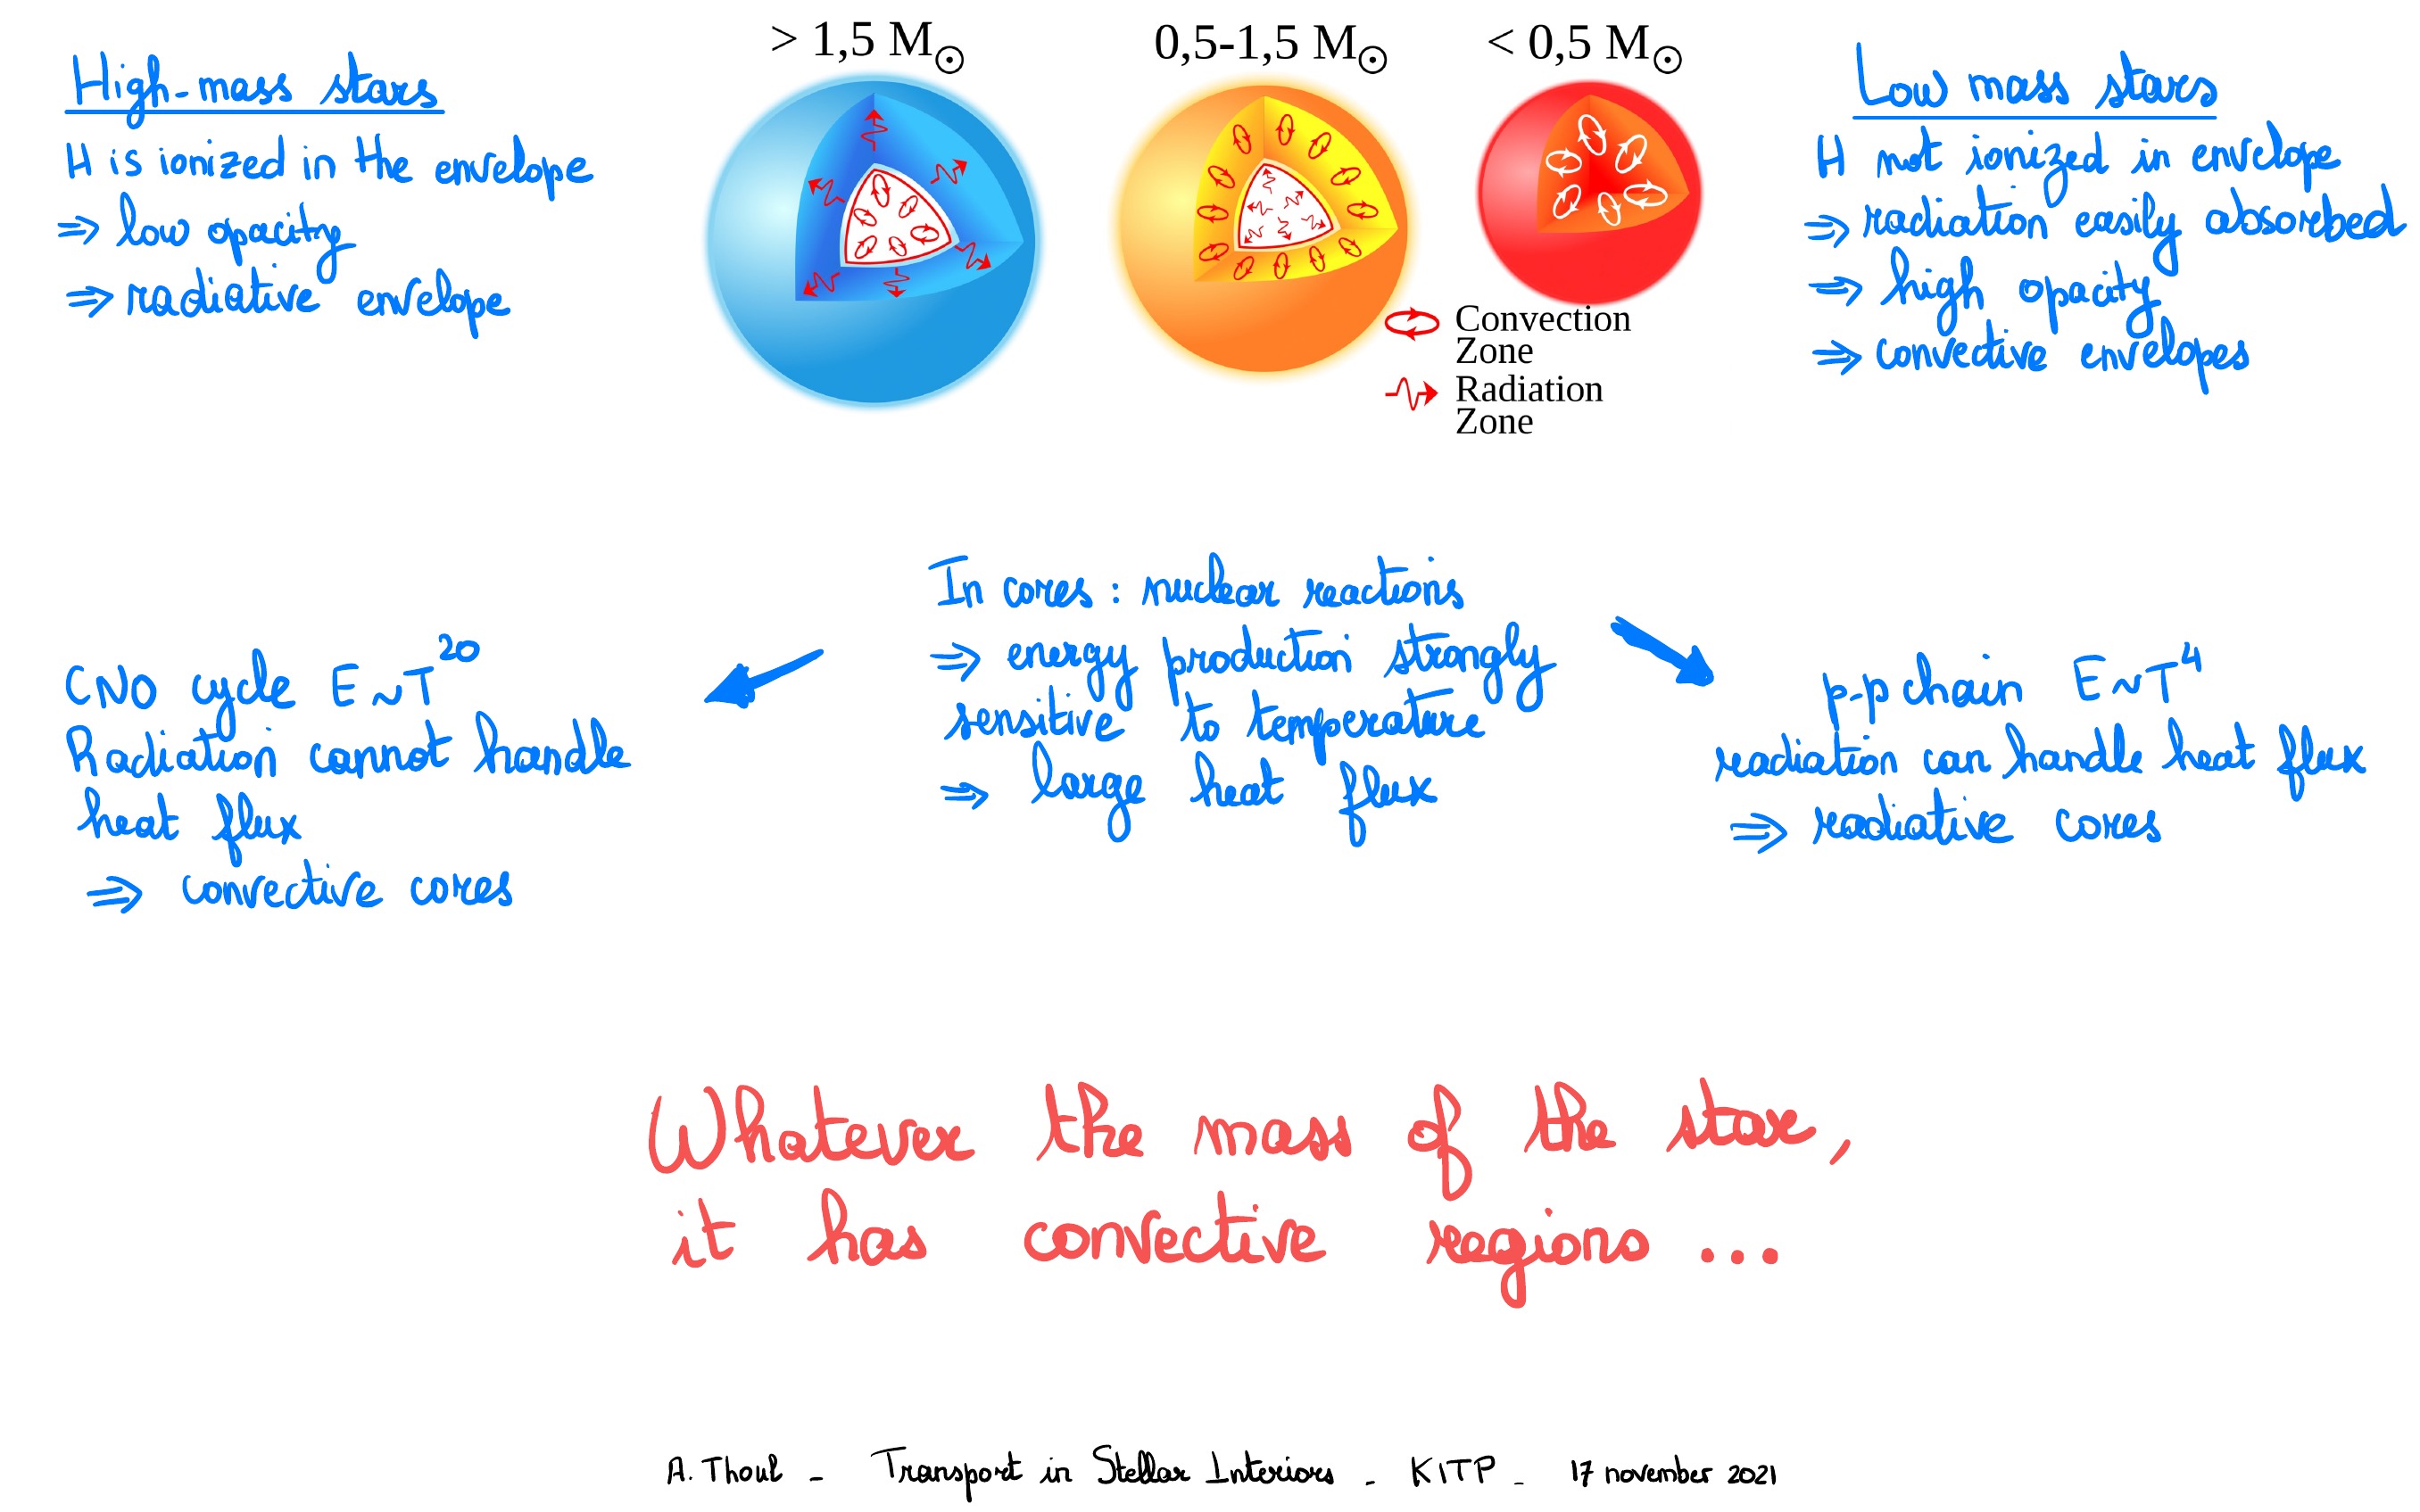 High-mass stars
H is ionized in the envelope
⇒ low opacity
⇒ radiative envelope
> 1,5 M⊙
0,5-1,5 M⊙
< 0,5 M⊙
Convection
Zone
Radiation
Zone
Low mass stars
H not ionized in envelope
⇒ radiation easily absorbed
⇒ high opacity
⇒ convective envelopes
In cores : nuclear reactions
⇒ energy production strongly
sensitive to temperature
⇒ large heat flux
CNO cycle E~T²⁰
Radiation cannot handle
heat flux
⇒ convective cores
p-p chain E~T⁴
radiation can handle heat flux
⇒ radiative cores
Whatever the mass of the star,
it has convective regions ...
A. Thoul - Transport in Stellar Interiors - KITP - 17 november 2021